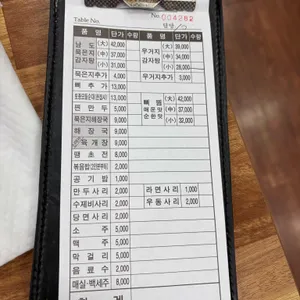 No. 004282
Table No.
품 명 단가 수량 품 명 단가 수량
남도 묵은지 감자탕 (大) 42,000
(中) 37,000
(小) 31,000
우거지 감자탕 (大) 39,000
(中) 34,000
(小) 28,000
묵은지추가 4,000 우거지추가 3,000
뼈 추 가 13,000
5,000
찐 만 두 5,000
뼈찜 매운맛 순한맛 (大) 42,000
(中) 37,000
(小) 32,000
묵은지해장국 9,000
해 장 국 9,000
육 개 장 9,000
땡 초 전 8,000
볶음밥 2,000
공 기 밥 1,000
만두사리 2,000 라면사리 1,000
수제비사리 2,000 우동사리 2,000
당면사리 2,000
소 주 5,000
맥 주 5,000
막 걸 리 5,000
음 료 수 2,000
매실·백세주 8,000